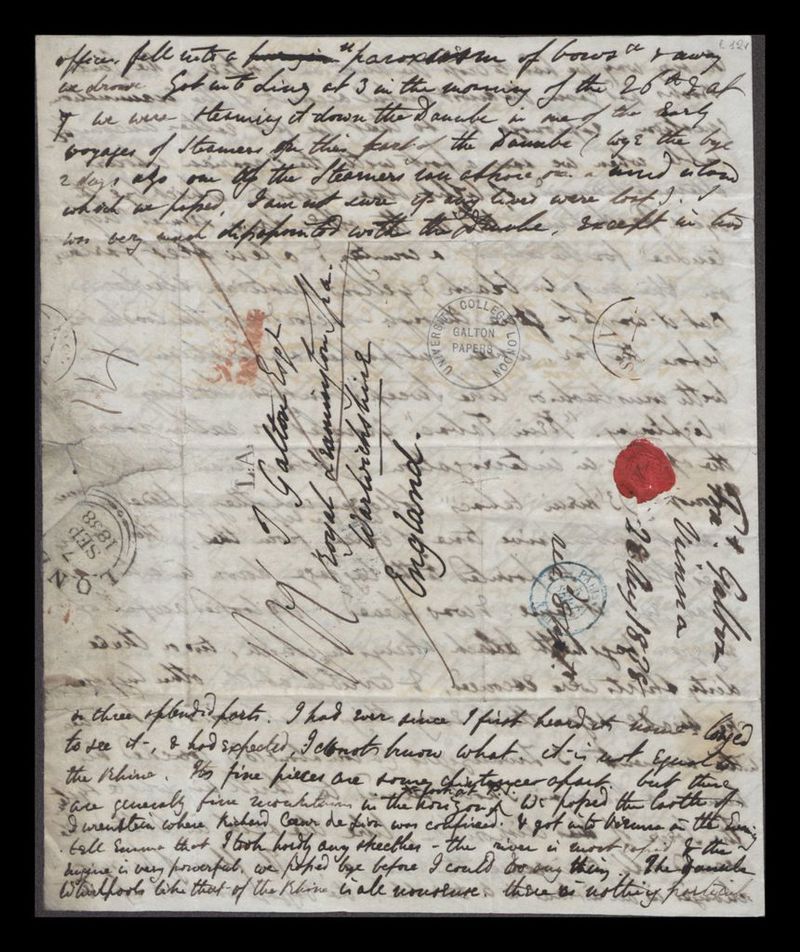 offices fell into a "paroxism of bows" & away
we drove. Got into Linz at 3 in the morning of the 26th & at
7 we were steaming it down the Danube in one of the early
voyages of Steamers on this part of the Danube (by the bye
2 days ago one of the Steamers ran ashore on a island
which we passed, I am not sure if any lives were lost). I
was very much disappointed with the Danube, except in two
or three splendid parts. I had ever since I first heard its name longed
to see it, & had expected I do not know what. it is not equal to
the Rhine. Its fine pieces are some distance apart but there
are generally fine mountains in the horizon. We passed the castle of
where Richard Coeur de Lion was confined. & got into Vienna in the Evening
tell Emma that I took hardly any sketches - the river is most rapid & the
engine is very powerful, we passed bye before I could do any thing. The Danube
Whirlpools like that of the Rhine is all nonsense. there is nothing
J Galton Esqr
Royal Leamington Spa.
Warwickshire
England.
UNIVERSITY COLLEGE LONDON
GALTON
PAPERS
T.A.
LON
7
SEP
1838
Fra. Galton
Vienna
28 Aug 1838